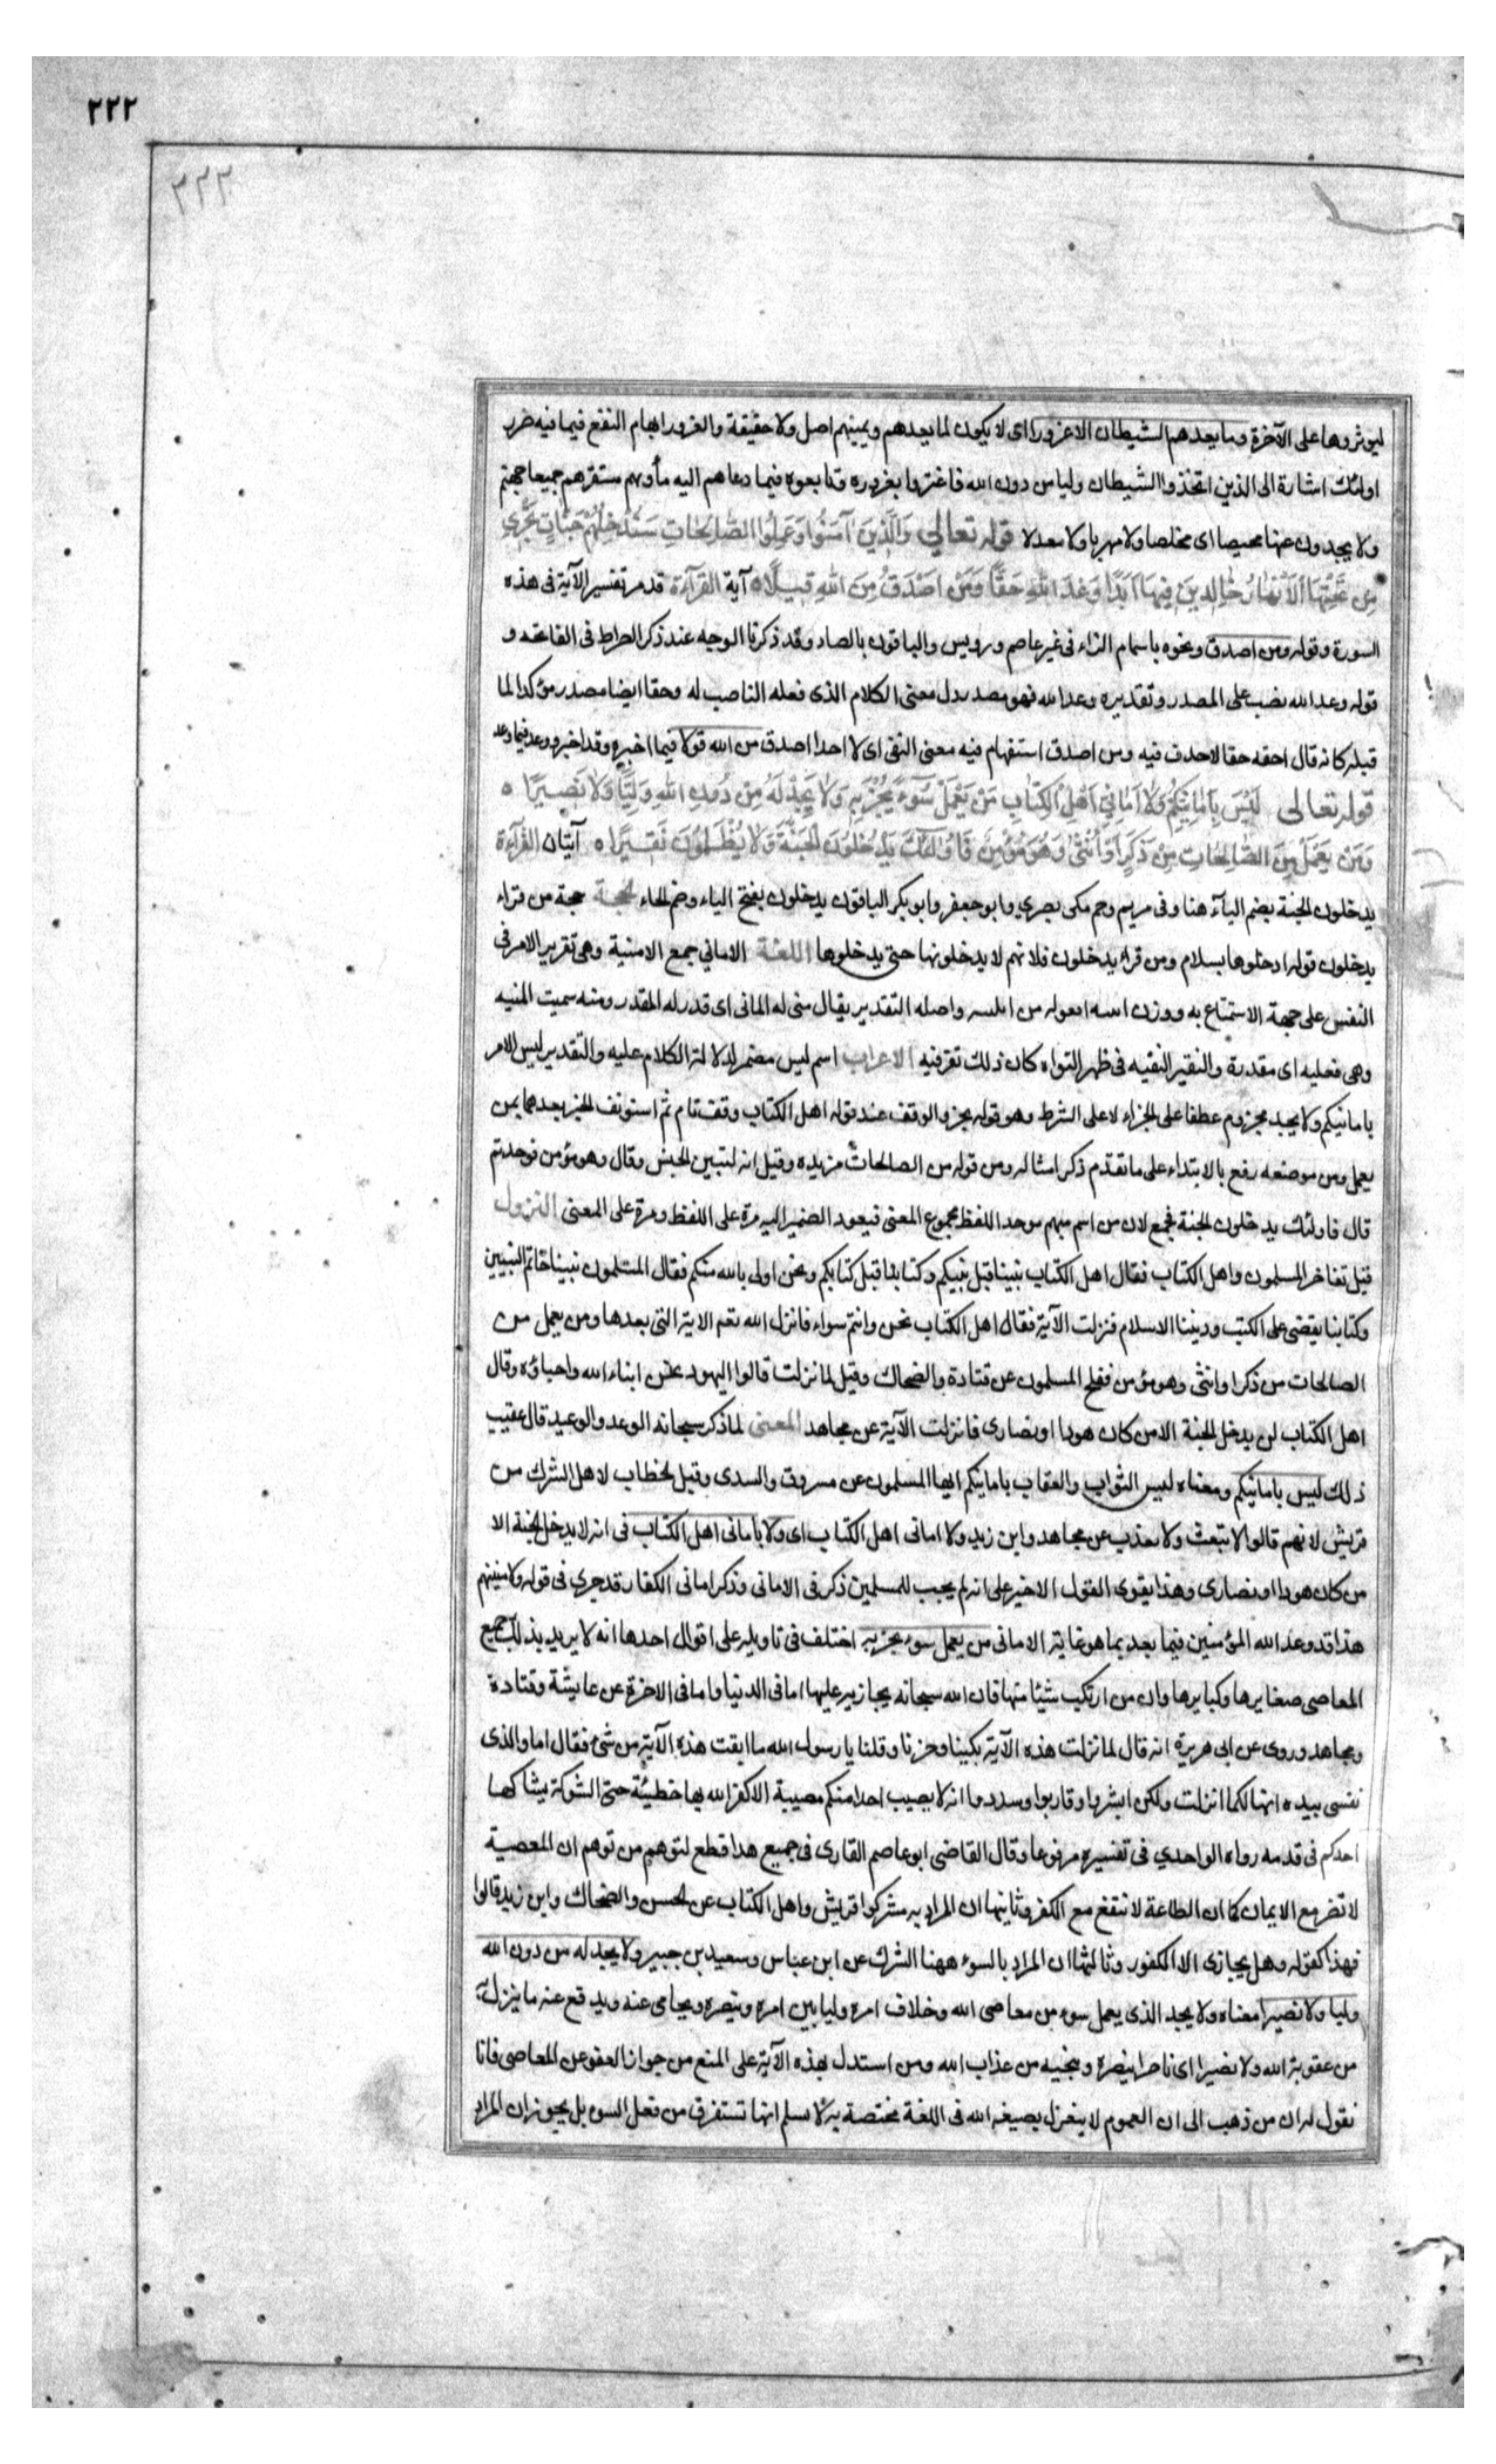 ٢٢٢
٢٢٢
ليوثروها على الآخرة وما يعدهم الشيطان الا غرورا اى لا يكون لما يعدهم ويمنيهم اصل ولا حقيقة والغرور ايهام النفع فيما فيه ضرر
اولئك اشارة الى الذين اتخذوا الشيطان وليا من دون الله فاغتروا بغروره وتابعوه فيما دعاهم اليه مأويهم مستقرهم جميعا جهنم
ولا يجدون عنها محيصا اى مخلصا ولا مهربا ولا معدلا قوله تعالى وَالَّذِينَ آمَنُوا وَعَمِلُوا الصَّالِحَاتِ سَنُدْخِلُهُمْ جَنَّاتٍ تَجْرِي
مِن تَحْتِهَا الْأَنْهَارُ خَالِدِينَ فِيهَا أَبَدًا وَعْدَ اللَّهِ حَقًّا وَمَنْ أَصْدَقُ مِنَ اللَّهِ قِيلًا ه آية القرآءة قد مر تفسير الآية فى هذه
السورة وقوله ومن اصدق ونحوه باسمام الزاء فى غير عاصم ورويس والباقون بالصاد وقد ذكرنا الوجه عند ذكر الصراط فى الفاتحه و
قوله وعد الله نصب على المصدر وتقديره وعد الله فهو مصدر دل معنى الكلام الذى فعله الناصب له وحقا ايضا مصدر مؤكدا لما
قبله كانه قال احقه حقا لا حدف فيه ومن اصدق استفهام فيه معنى النفى اى لا احدا اصدق من الله قولا فيما اخبر به وقد اخبر ووعد فيما وعد
قوله تعالى لَيْسَ بِأَمَانِيِّكُمْ وَلَا أَمَانِيِّ أَهْلِ الْكِتَابِ مَنْ يَعْمَلْ سُوءًا يُجْزَ بِهِ وَلَا يَجِدْ لَهُ مِنْ دُونِ اللَّهِ وَلِيًّا وَلَا نَصِيرًا ه
وَمَنْ يَعْمَلْ مِنَ الصَّالِحَاتِ مِنْ ذَكَرٍ أَوْ أُنْثَى وَهُوَ مُؤْمِنٌ فَأُولَئِكَ يَدْخُلُونَ الْجَنَّةَ وَلَا يُظْلَمُونَ نَقِيرًا ه آيتان القرآءة
يدخلون الجنة بضم اليآء هنا وفى مريم وحم مكى بصرى وابو جعفر وابو بكر الباقون يدخلون بفتح الياء وضم الخاء الحجة حجة من قراء
يدخلون قوله ادخلوها بسلام ومن قراء يدخلون فلانهم لا يدخلونها حتى يدخلوها اللغة الامانى جمع الامنية وهى تقرير الامر فى
النفس على جهة الاستمتاع به ووزن واصله التقدير يقال منى له المانى اى قدر له المقدر ومنه سميت المنيه
وهى فعليه اى مقدرة والنقير النقيه فى ظهر النواه كان ذلك نقر فيه الاعراب اسم ليس مضمر لدلالة الكلام عليه والتقدير ليس الامر
بامانيكم ولا يجد مجزوم عطفا على الجزاء لا على الشرط وهو قوله يجز والوقف عند قوله اهل الكتاب وقف تام ثم استونف الخبر بعدها بمن
يعمل ومن موضعه رفع بالابتداء على ما تقدم ذكر امثاله ومن قوله من الصالحات مزيده وقيل انه لتبين الجنس وقال وهو مؤمن فوحد ثم
قال فاولئك يدخلون الجنة فجمع لان من اسم مبهم موحد اللفظ مجموع المعنى فيعود الضمير اليه مرة على اللفظ ومرة على المعنى النزول
قيل تفاخر المسلمون واهل الكتاب فقال اهل الكتاب نبينا قبل نبيكم وكتابنا قبل كتابكم ونحن اولى بالله منكم فقال المسلمون نبينا خاتم النبيين
وكتابنا يقضى على الكتب وديننا الاسلام فنزلت الآية فقال اهل الكتاب نحن وانتم سواء فانزل الله تعم الاية التى بعدها ومن يعمل من
الصالحات من ذكر او انثى وهو مؤمن ففلح المسلمون عن قتادة والضحاك وقيل لما نزلت قالوا اليهود نحن ابناء الله واحباؤه وقال
اهل الكتاب لن يدخل الجنة الا من كان هودا او نصارى فانزلت الآية عن مجاهد المعنى لما ذكر سبحانه الوعد والوعيد قال عقيب
ذلك ليس بامانيكم ومعناه ليس الثواب والعقاب بامانيكم ايها المسلمون عن مسروق والسدى وقيل الخطاب لاهل الشرك من
قريش لانهم قالوا لا نبعث ولا نعذب عن مجاهد وابن زيد ولا امانى اهل الكتاب اى ولا بامانى اهل الكتاب فى انه لا يدخل الجنة الا
من كان هودا او نصارى وهذا يقوى القول الاخير على انه لم يجب للمسلمين ذكر فى الامانى وذكر امانى الكفار قد جرى فى قوله ولامنينهم
هذا قد وعد الله المؤمنين فيما بعد بما هو غاية الامانى من يعمل سوء يجز به اختلف فى تاويله على اقوال احدها انه لا يريد بذلك جميع
المعاصى صغايرها وكبايرها وان من ارتكب شيئا منها فان الله سبحانه يجازيه عليها اما فى الدنيا واما فى الاخرة عن عايشة وقتادة
ومجاهد وروى عن ابى هريرة انه قال لما نزلت هذه الآية بكينا وحزنا وقلنا يا رسول الله ما ابقت هذه الآية من شئ فقال اما والذى
نفسى بيده انها لكما انزلت ولكن ابشروا وقاربوا وسددوا انه لا يصيب احدا منكم مصيبة الا كفر الله بها خطيئة حتى الشوكة يشاكها
احدكم فى قدمه رواه الواحدى فى تفسيره مرفوعا وقال القاضى ابو عاصم القارى فى جميع هذا قطع لتوهم من توهم ان المعصية
لا تضر مع الايمان كما ان الطاعة لا تنفع مع الكفر وثانيها ان المراد به مشركوا قريش واهل الكتاب عن الحسن والضحاك وابن زيد قالوا
فهذا كقوله وهل يجازى الا الكفور وثالثها ان المراد بالسوء ههنا الشرك عن ابن عباس وسعيد بن جبير ولا يجد له من دون الله
وليا ولا نصيرا معناه ولا يجد الذى يعمل سوء من معاصى الله وخلاف امره وليا بين امره وينصره ويحامى عنه ويدفع عنه ما ينزل به
من عقوبة الله ولا نصيرا اى ناصرا ينصره وينجيه من عذاب الله ومن استدل بهذه الآية على المنع من جواز العفو عن المعاصى فانا
نقول له ان من ذهب الى ان العموم لا ينفزل بصيغه الله فى اللغة مختصة به لا يسلم انها تستغرق من فعل السوء بل يجوز ان المراد